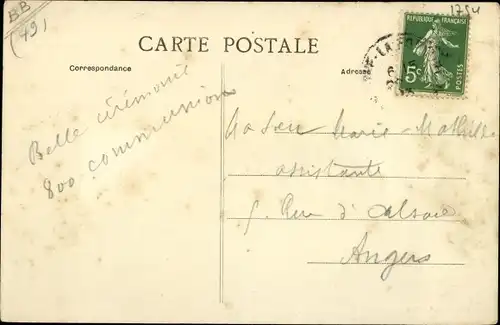 BB
(49)
1754
CARTE POSTALE
Correspondance
Adresse
REPUBLIQUE FRANÇAISE
5c
POSTES
Belle cérémonie
800 communions
Ma Sœur Marie-Mathilde
assistante
5. Rue d'Alsace
Angers